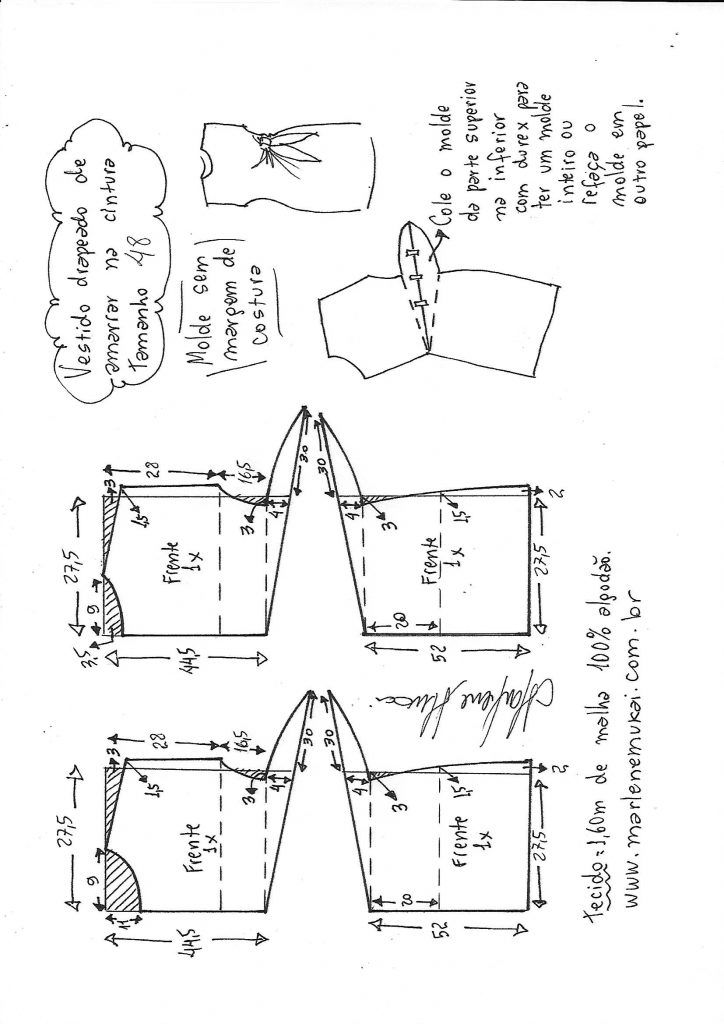 Vestido drapeado de
amarrar na cintura
Tamanho 48
Molde sem
margem de
costura
Cole o molde
da parte superior
na inferior
com durex para
ter um molde
inteiro ou
refaça o
molde em
outro papel.
27,5
9
11
3
28
16,5
1,5
3
4
30
44,5
Frente
1x
30
4
3
1,5
2
20
52
27,5
Frente
1x
27,5
9
3,5
3
28
16,5
1,5
3
4
30
44,5
Frente
1x
30
4
3
1,5
2
20
52
27,5
Frente
1x
Marlene Mukai
tecido = 1,60m de malha 100% algodão.
www.marlenemukai.com.br